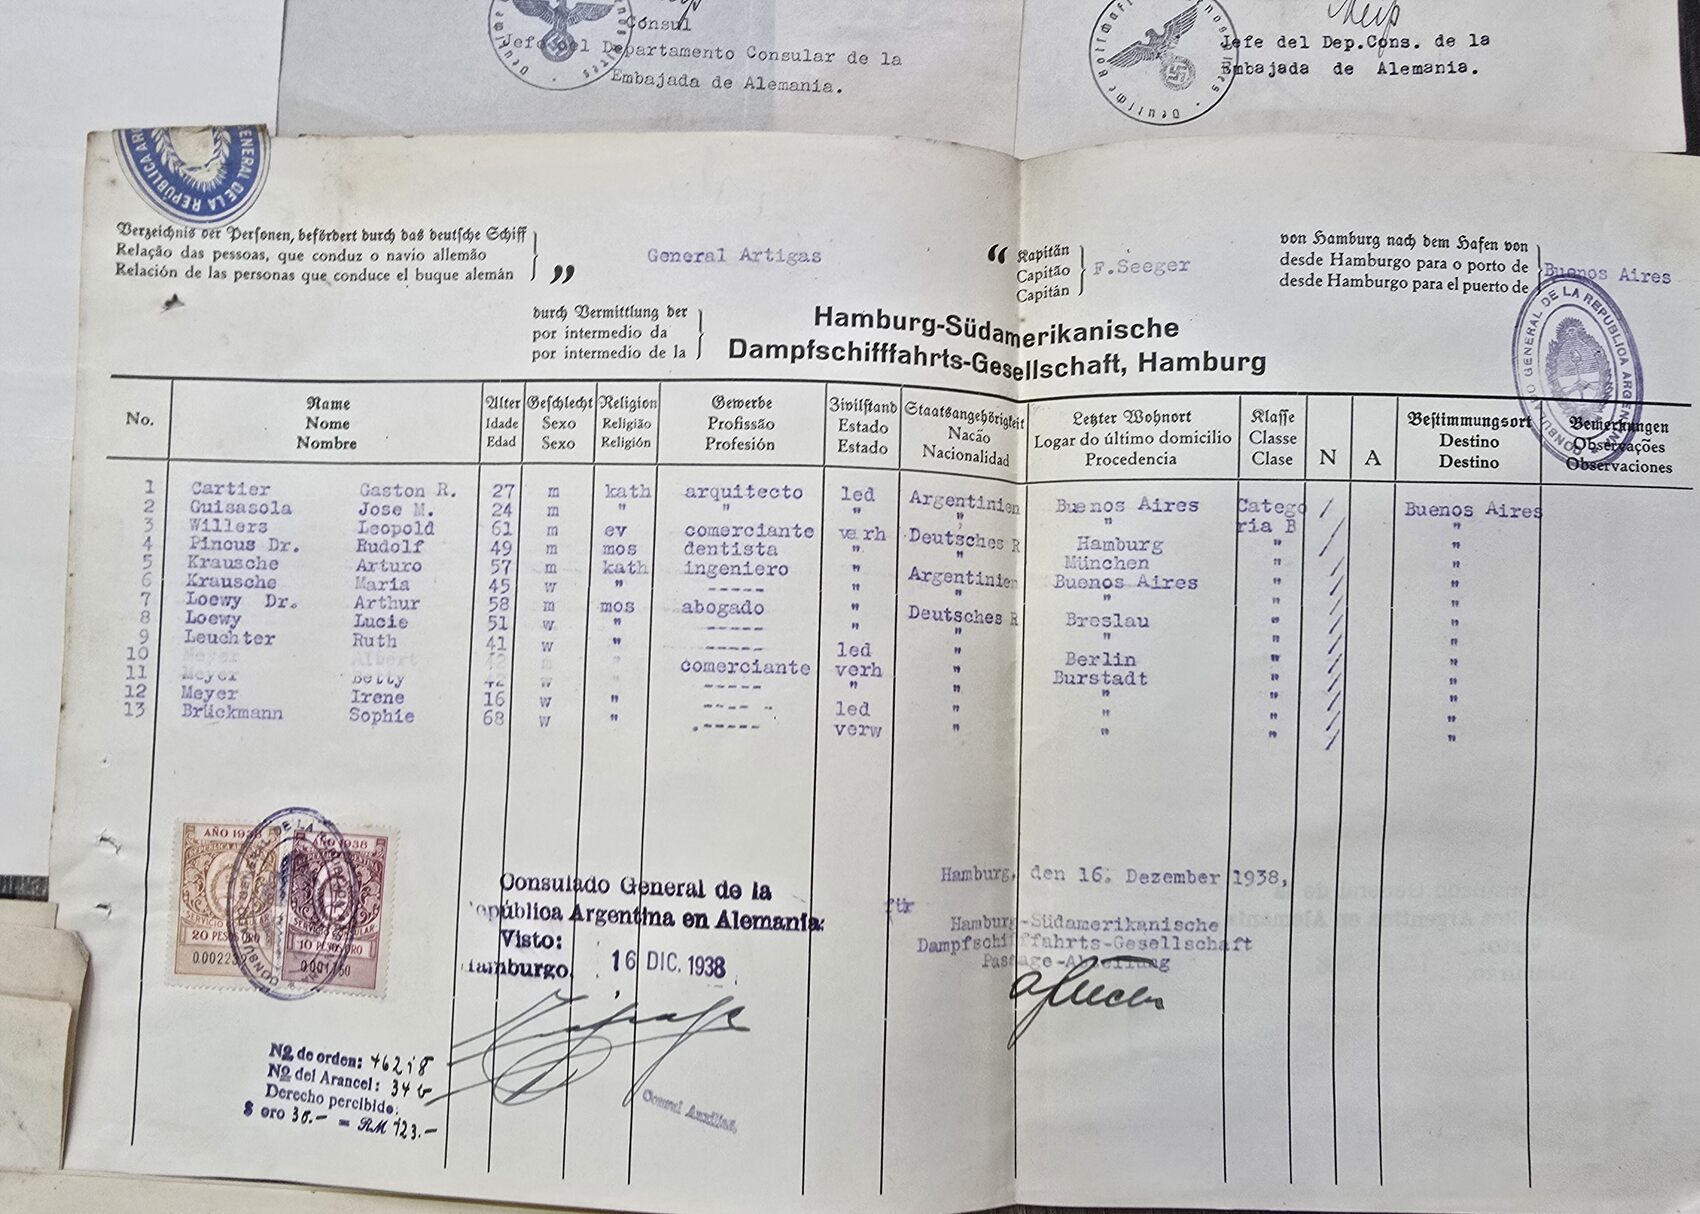 Consul
Jefe del Departamento Consular de la
Embajada de Alemania.
Jefe del Dep.Cons. de la
Embajada de Alemania.
Verzeichnis der Personen, befördert durch das deutsche Schiff
Relação das pessoas, que conduz o navio allemão
Relación de las personas que conduce el buque alemán
„ General Artigas “
Kapitän
Capitão
Capitán
F.Seeger
von Hamburg nach dem Hafen von
desde Hamburgo para o porto de
desde Hamburgo para el puerto de
Buenos Aires
durch Vermittlung der
por intermedio da
por intermedio de la
Hamburg-Südamerikanische
Dampfschifffahrts-Gesellschaft, Hamburg
CONSULADO GENERAL DE LA REPUBLICA ARGENTINA
No. Name Alter Geschlecht Religion Gewerbe Zivilstand Staatsangehörigkeit Letzter Wohnort Klasse N A Bestimmungsort Bemerkungen
Nome Idade Sexo Religião Profissão Estado Nacão Logar do último domicilio Classe Destino Observações
Nombre Edad Sexo Religión Profesión Estado Nacionalidad Procedencia Clase Destino Observaciones
1 Cartier Gaston R. 27 m kath arquitecto led Argentinien Buenos Aires Catego / Buenos Aires
2 Guisasola Jose M. 24 m " " " " " ria B / "
3 Willers Leopold 61 m ev comerciante verh Deutsches R Hamburg " / "
4 Pincus Dr. Rudolf 49 m mos dentista " " München " / "
5 Krausche Arturo 57 m kath ingeniero " Argentinien Buenos Aires " / "
6 Krausche Maria 45 w " ----- " " " " / "
7 Loewy Dr. Arthur 58 m mos abogado " Deutsches R Breslau " / "
8 Loewy Lucie 51 w " ----- " " " " / "
9 Leuchter Ruth 41 w " ----- led " Berlin " / "
10 Meyer Albert 42 m " comerciante verh " Burstadt " / "
11 Meyer Betty 42 w " ----- " " " " / "
12 Meyer Irene 16 w " ----- led " " " / "
13 Brückmann Sophie 68 w " ----- verw " " " / "
AÑO 1938
20 PESOS ORO
AÑO 1938
10 PESOS ORO
Consulado General de la
República Argentina en Alemania.
Visto:
Hamburgo, 16 DIC. 1938
Hamburg, den 16. Dezember 1938,
für
Hamburg-Südamerikanische
Dampfschifffahrts-Gesellschaft
Passage-Abteilung
Nº de orden:
Nº del Arancel: 34
Derecho percibido:
$ oro 30.- = RM 123.-
Consul Auxiliar.